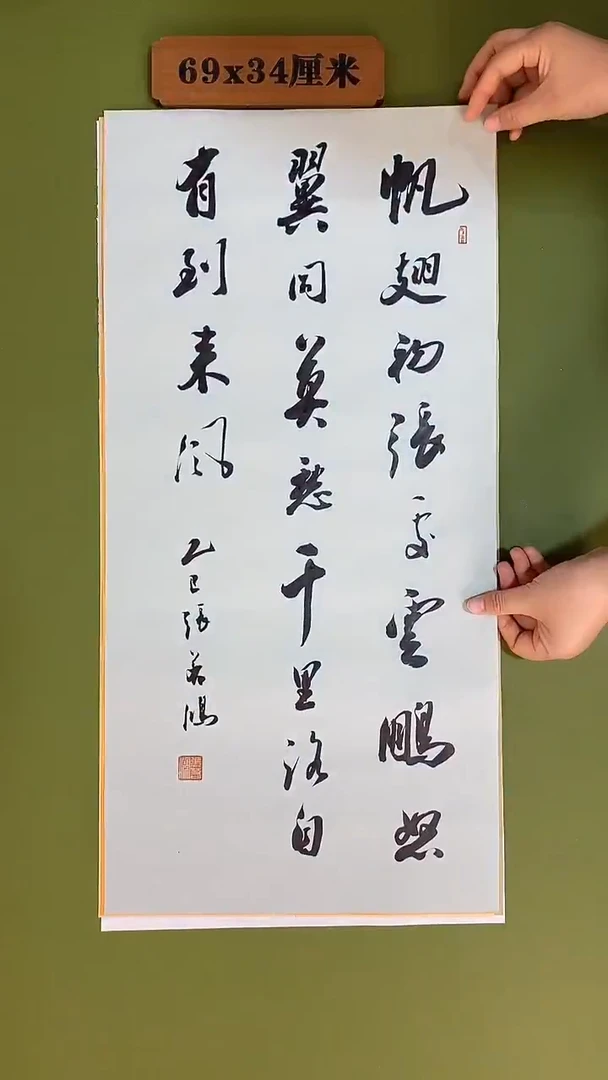 69x34厘米
帆翅初張處雲鵬怒
翼同莫愁千里路自
有到来風
乙巳張若鴻